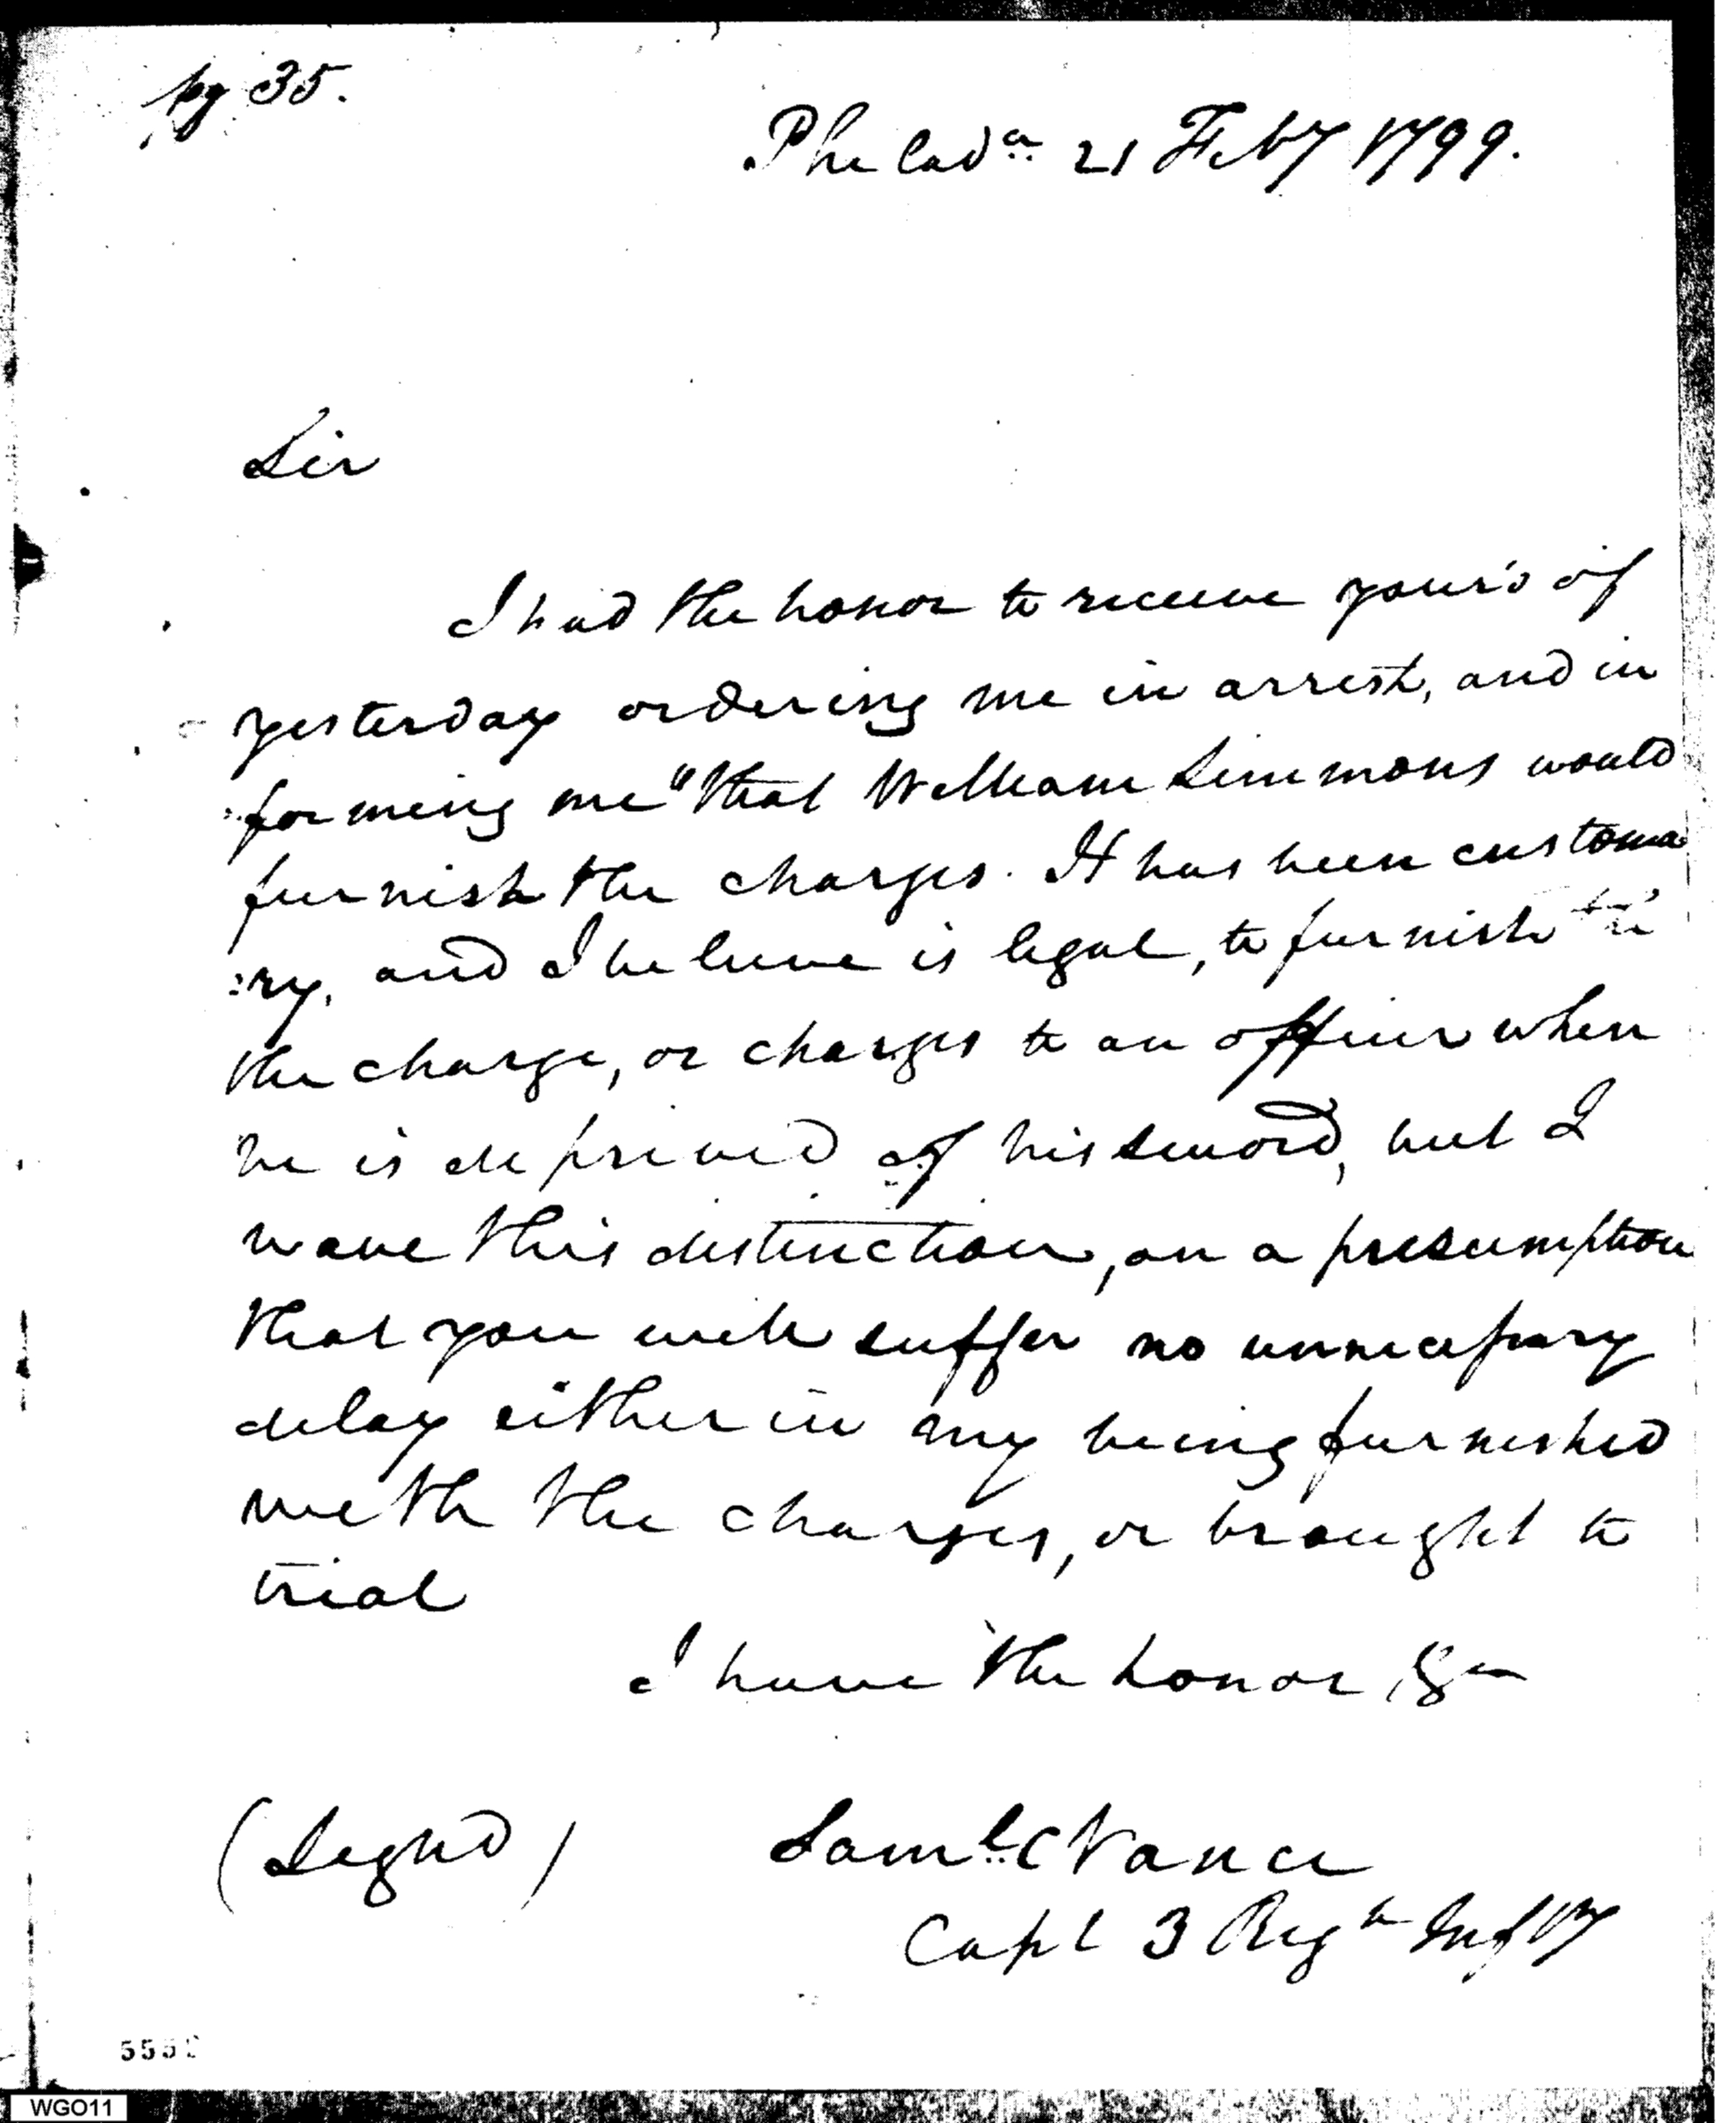 pg 35.
Philada 21 Feby 1799.
Sir
I had the honor to receive your's of
yesterday ordering me in arrest, and in
forming me "that William Simmons would
furnish the charges. It has been customa
:ry, and I believe is legal, to furnish
the charge, or charges to an officer when
he is deprived of his sword, but I
wave this distinction, on a presumption
that you will suffer no unnecessary
delay either in my being furnished
with the charges, or brought to
trial
I have the honor, &c
(Signd) Saml. C Vance
Capt 3 Regt Infty
WGO11